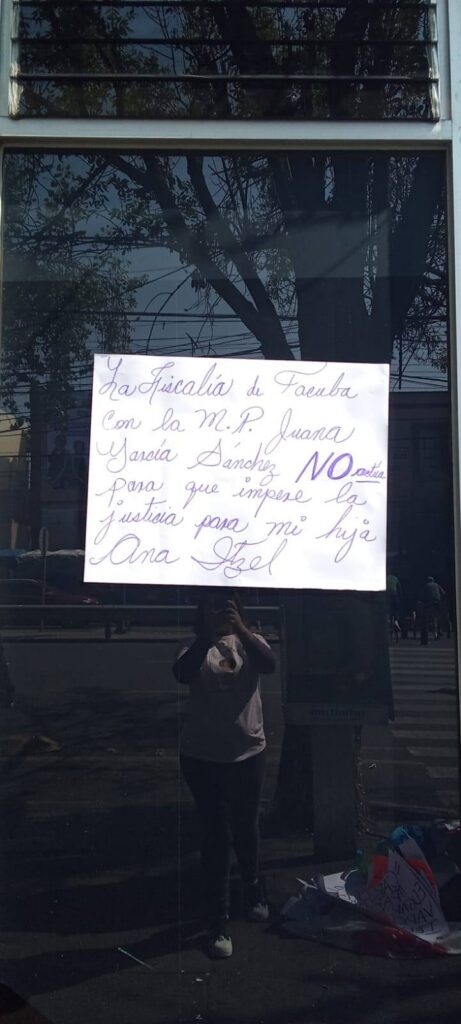 La Fiscalía de Tacuba
con la M.P. Juana
García Sánchez NO actúa
para que impere la
justicia para mi hija
Ana Itzel